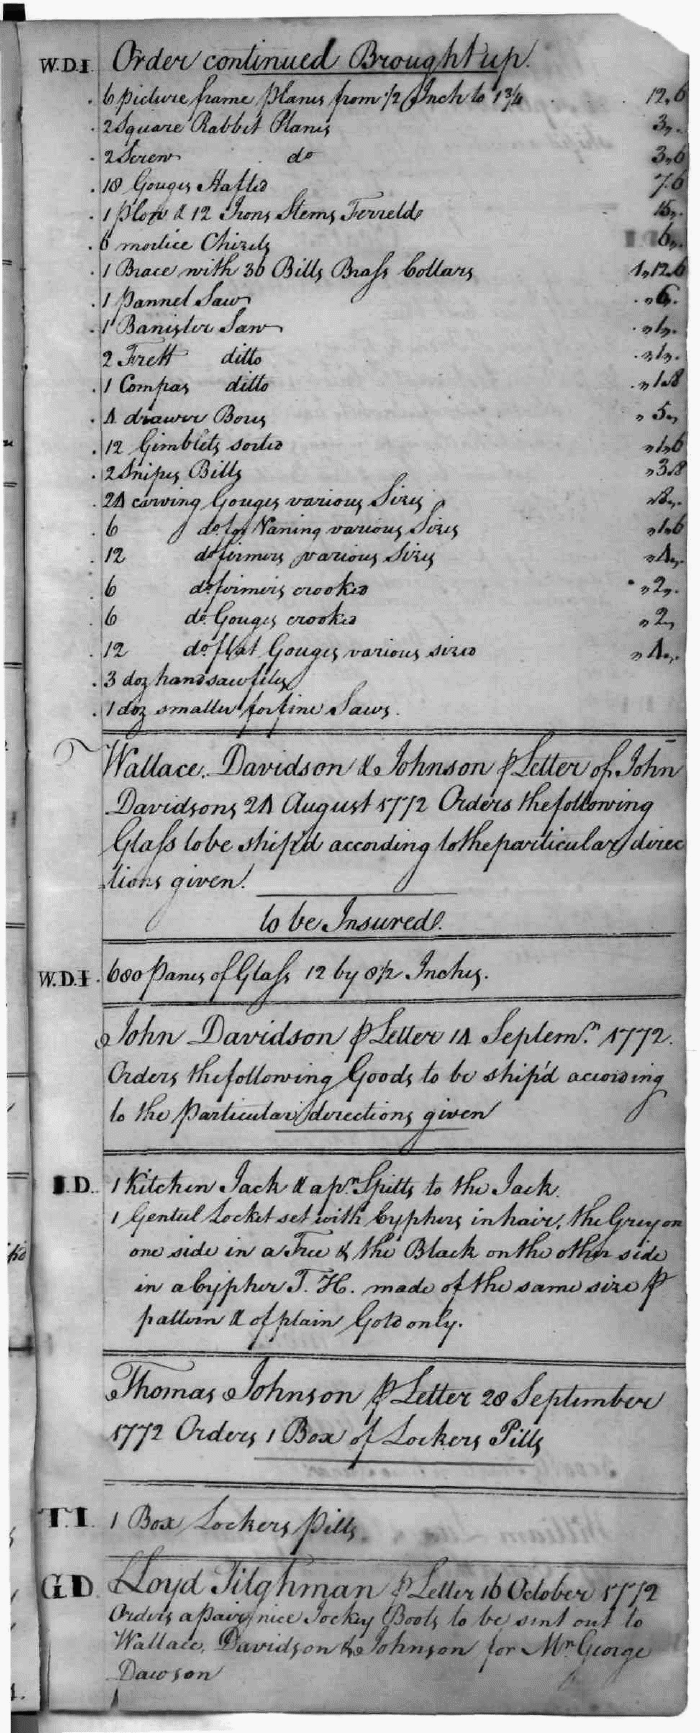 W.D.I. Order continued Brought up.
6 picture frame planes from 1/2 Inch to 1 3/4 12.6
2 Square Rabbit Planes 3„.
2 Screw do 3.6
18 Gouges Hafted 7.6
1 plow & 12 Irons Stems Ferreld 15„.
6 mortice Chizels 6„.
1 Brace with 36 Bitts Brass Collars 1„12.6
1 Pannel Saw „6.
1 Banister Saw „1„.
2 Frett ditto „1„.
1 Compas ditto „1.8
4 drawer Bores „5„
12 Gimblets sorted „1.6
2 Snipes Bills „3.8
24 carving Gouges various Sizes „8„.
6 do for Naning various Sizes „1.6
12 do firmers various Sizes „4„.
6 do firmers crooked „2„.
6 do Gouges crooked „2„
12 do flat Gouges various sizes „4„.
3 doz handsaw files
1 doz smaller for fine Saws.
Wallace, Davidson & Johnson ⅌ Letter of John
Davidsons 24 August 1772 Orders the following
Glass to be ship'd according to the particular direc
tions given.
to be Insured.
W.D.I. 680 Panes of Glass 12 by 8 1/2 Inches.
John Davidson ⅌ Letter 14 Septemr. 1772.
Orders the following Goods to be ship'd according
to the particular directions given
I.D. 1 Kitchen Jack & a pr. Spitts to the Jack.
1 Genteel Locket set with Cyphers in hair, the Grey on
one side in a Tree & the Black on the other side
in a Cypher T. H. made of the same size &
pattern & of plain Gold only.
Thomas Johnson ⅌ Letter 28 September
1772 Orders 1 Box of Lockers Pills
T.I. 1 Box Lockers Pills.
G.D. Lloyd Tilghman ⅌ Letter 16 October 1772
Orders a pair nice Jockey Boots to be sent out to
Wallace, Davidson & Johnson for Mr. George
Dawson